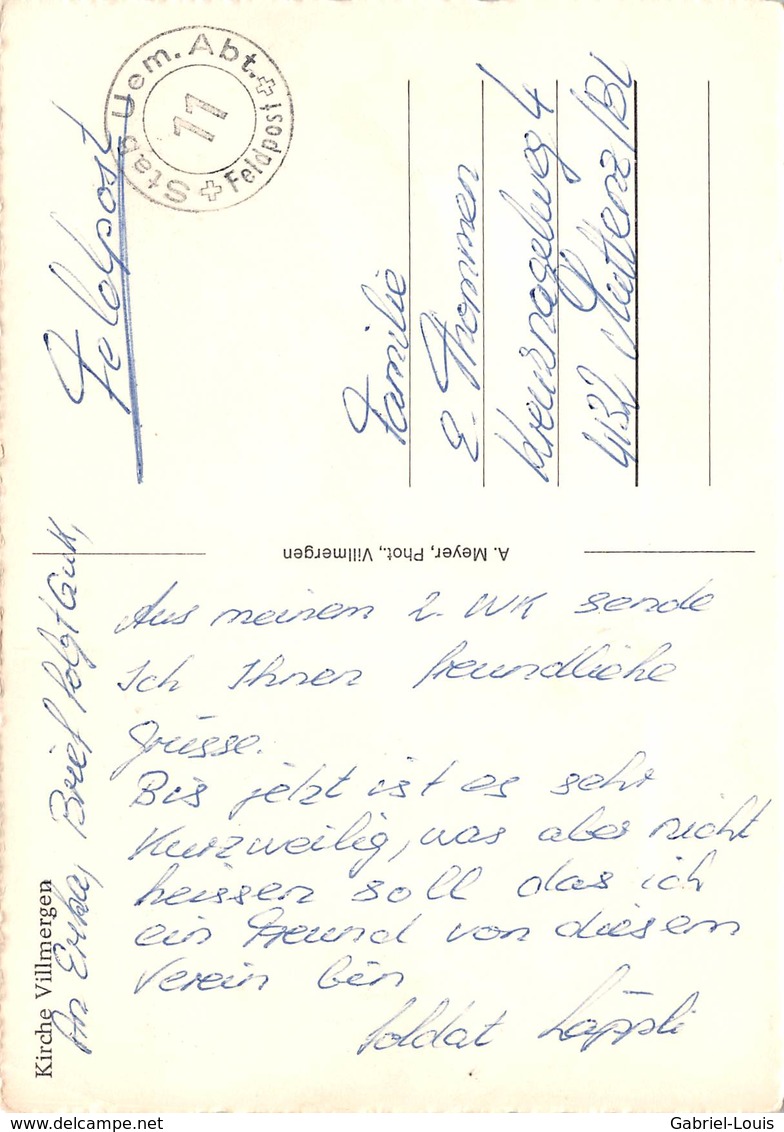 Stab Uem. Abt. + Feldpost +
11
Feldpost
Familie
E. Thommen
Kreuznagelweg 4
4132 Muttenz/BL
A. Meyer, Phot., Villmergen
Kirche Villmergen
Aus meinem 2. WK sende
Ich Ihnen freundliche
Grüsse.
Bis jetzt ist es sehr
Kurzweilig, was aber nicht
heissen soll das ich
ein Freund von diesem
Verein bin
Soldat Läppli
An Erika, Brief folgt
delcampe.net
Gabriel-Louis